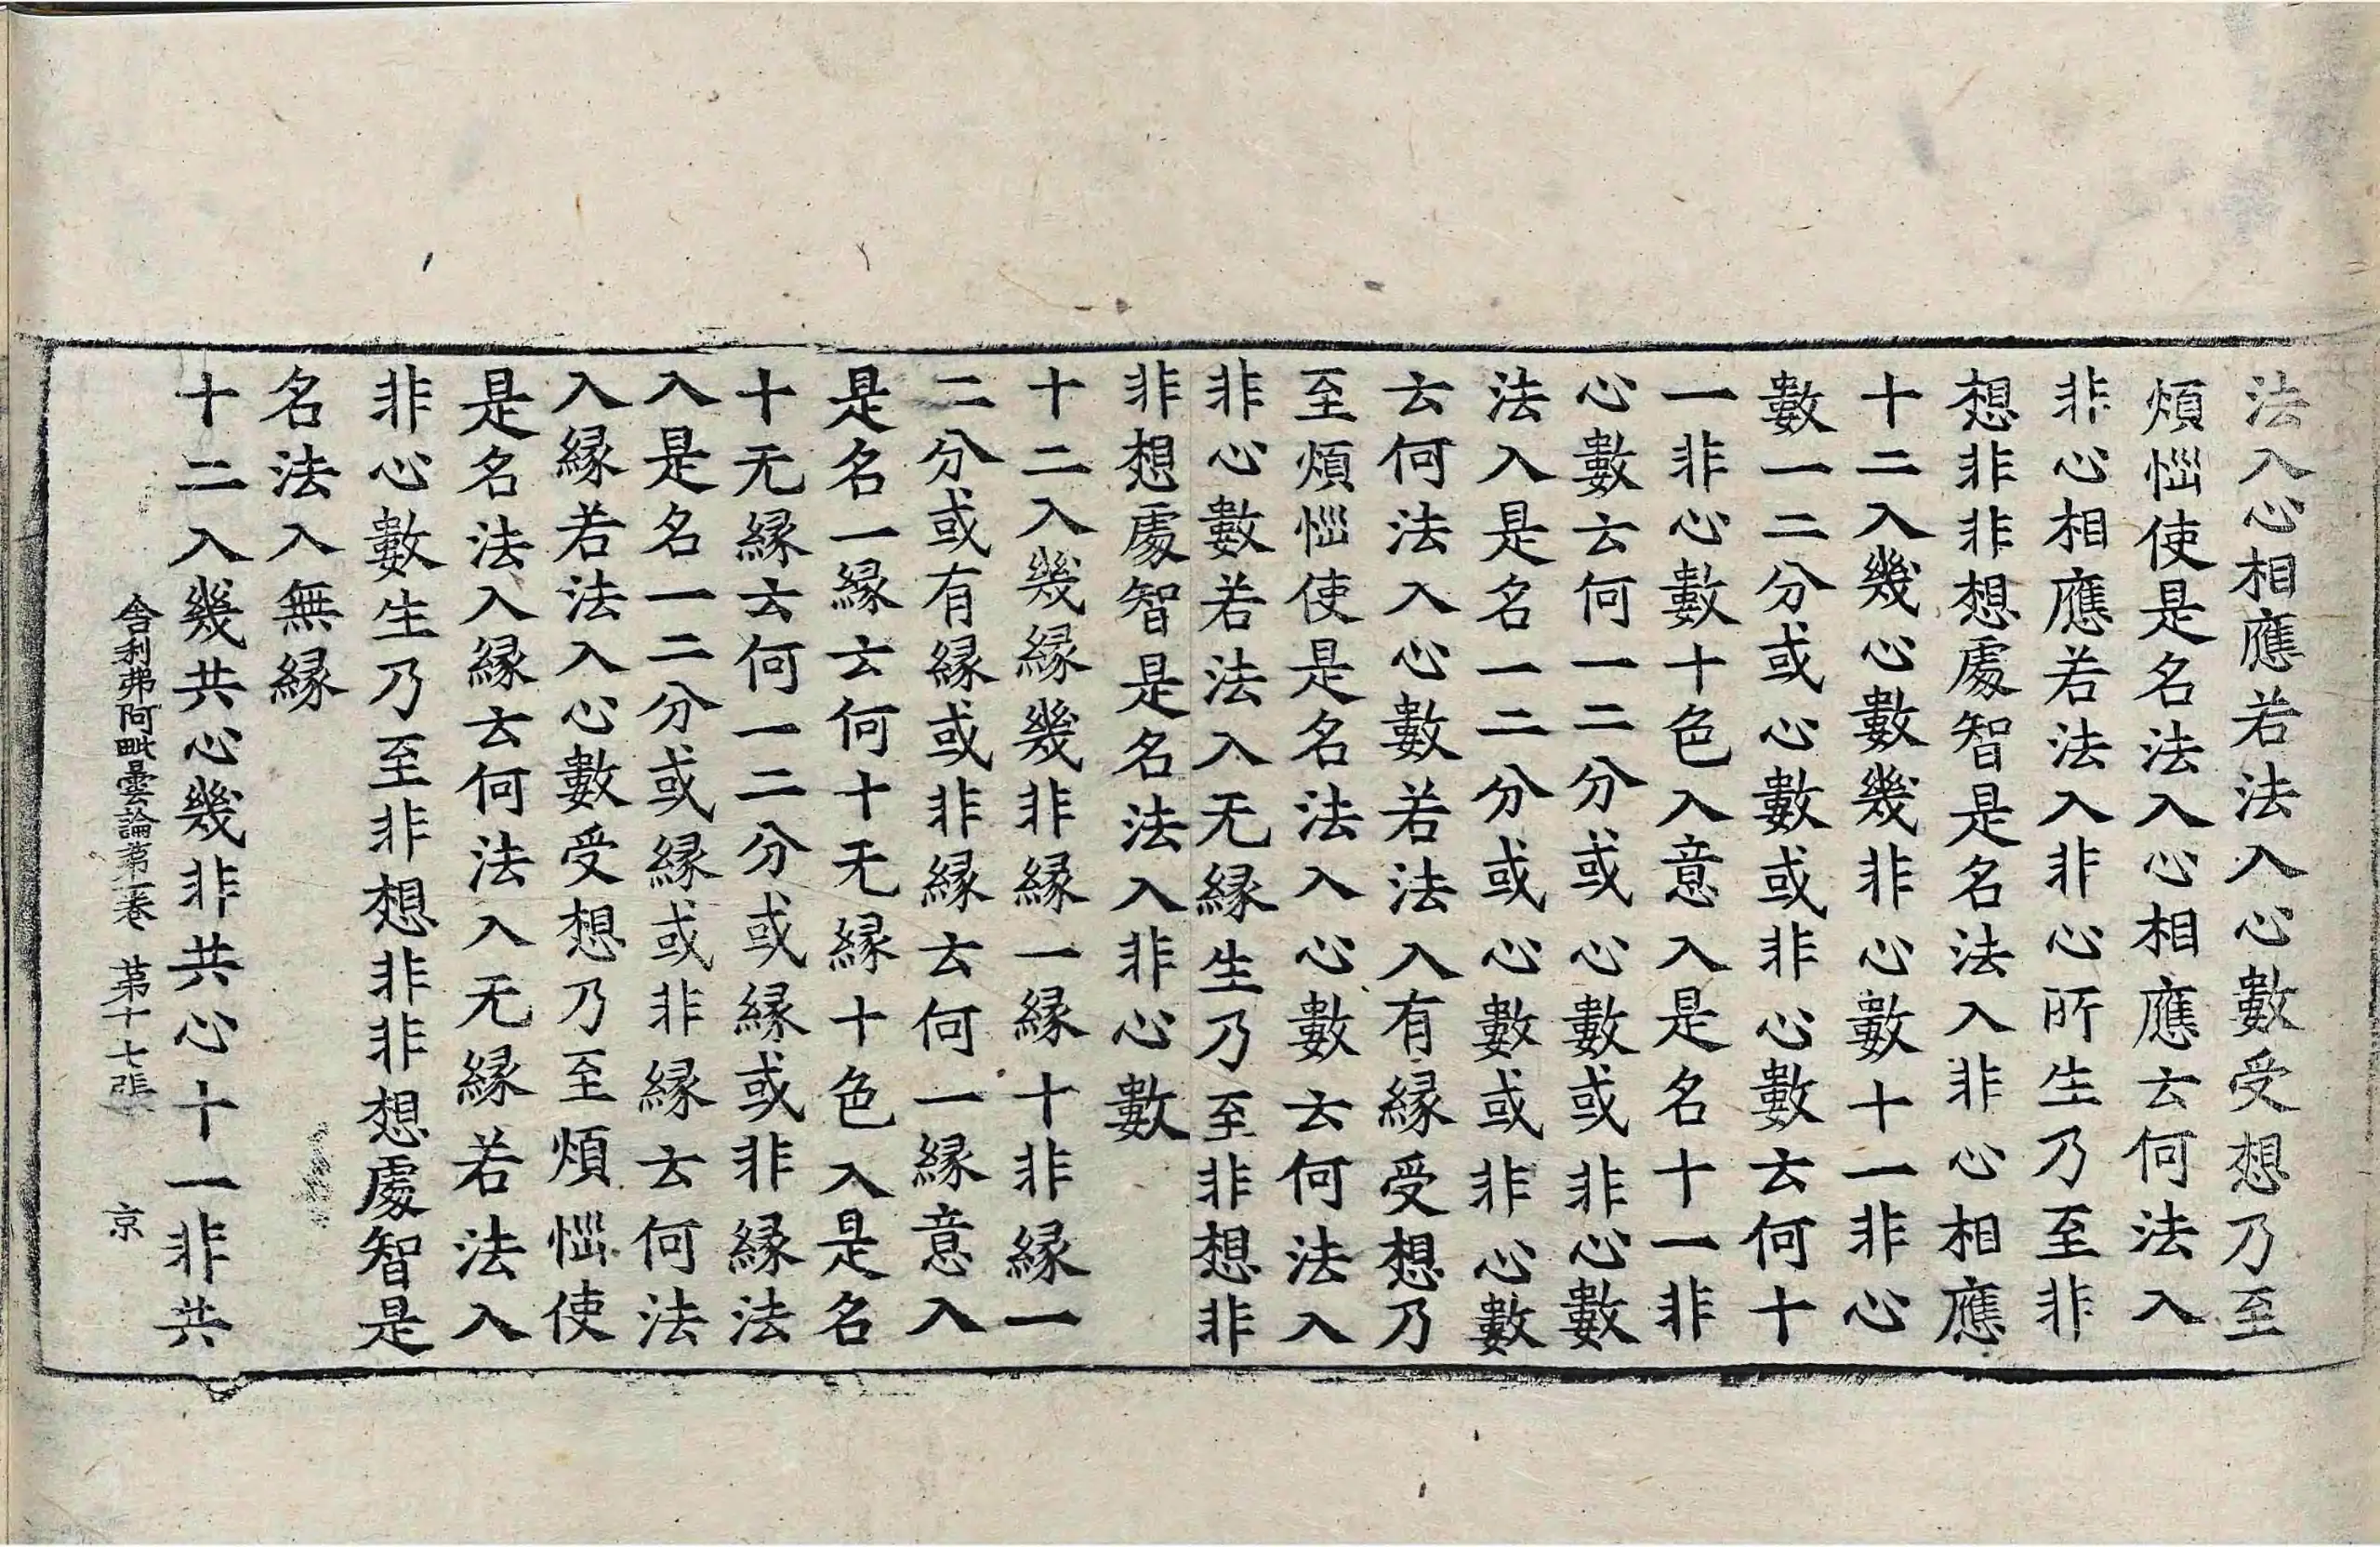 法入心相應若法入心數受想乃至
煩惱使是名法入心相應云何法入
非心相應若法入非心所生乃至非
想非非想處智是名法入非心相應
十二入幾心數幾非心數十一非心
數一二分或心數或非心數云何十
一非心數十色入意入是名十一非
心數云何一二分或心數或非心數
法入是名一二分或心數或非心數
云何法入心數若法入有緣受想乃
至煩惱使是名法入心數云何法入
非心數若法入无緣生乃至非想非
非想處智是名法入非心數
十二入幾緣幾非緣一緣十非緣一
二分或有緣或非緣云何一緣意入
是名一緣云何十无緣十色入是名
十无緣云何一二分或緣或非緣法
入是名一二分或緣或非緣云何法
入緣若法入心數受想乃至煩惱使
是名法入緣云何法入无緣若法入
非心數生乃至非想非非想處智是
名法入無緣
十二入幾共心幾非共心十一非共
舍利弗阿毗曇論第一卷 第十七張 京